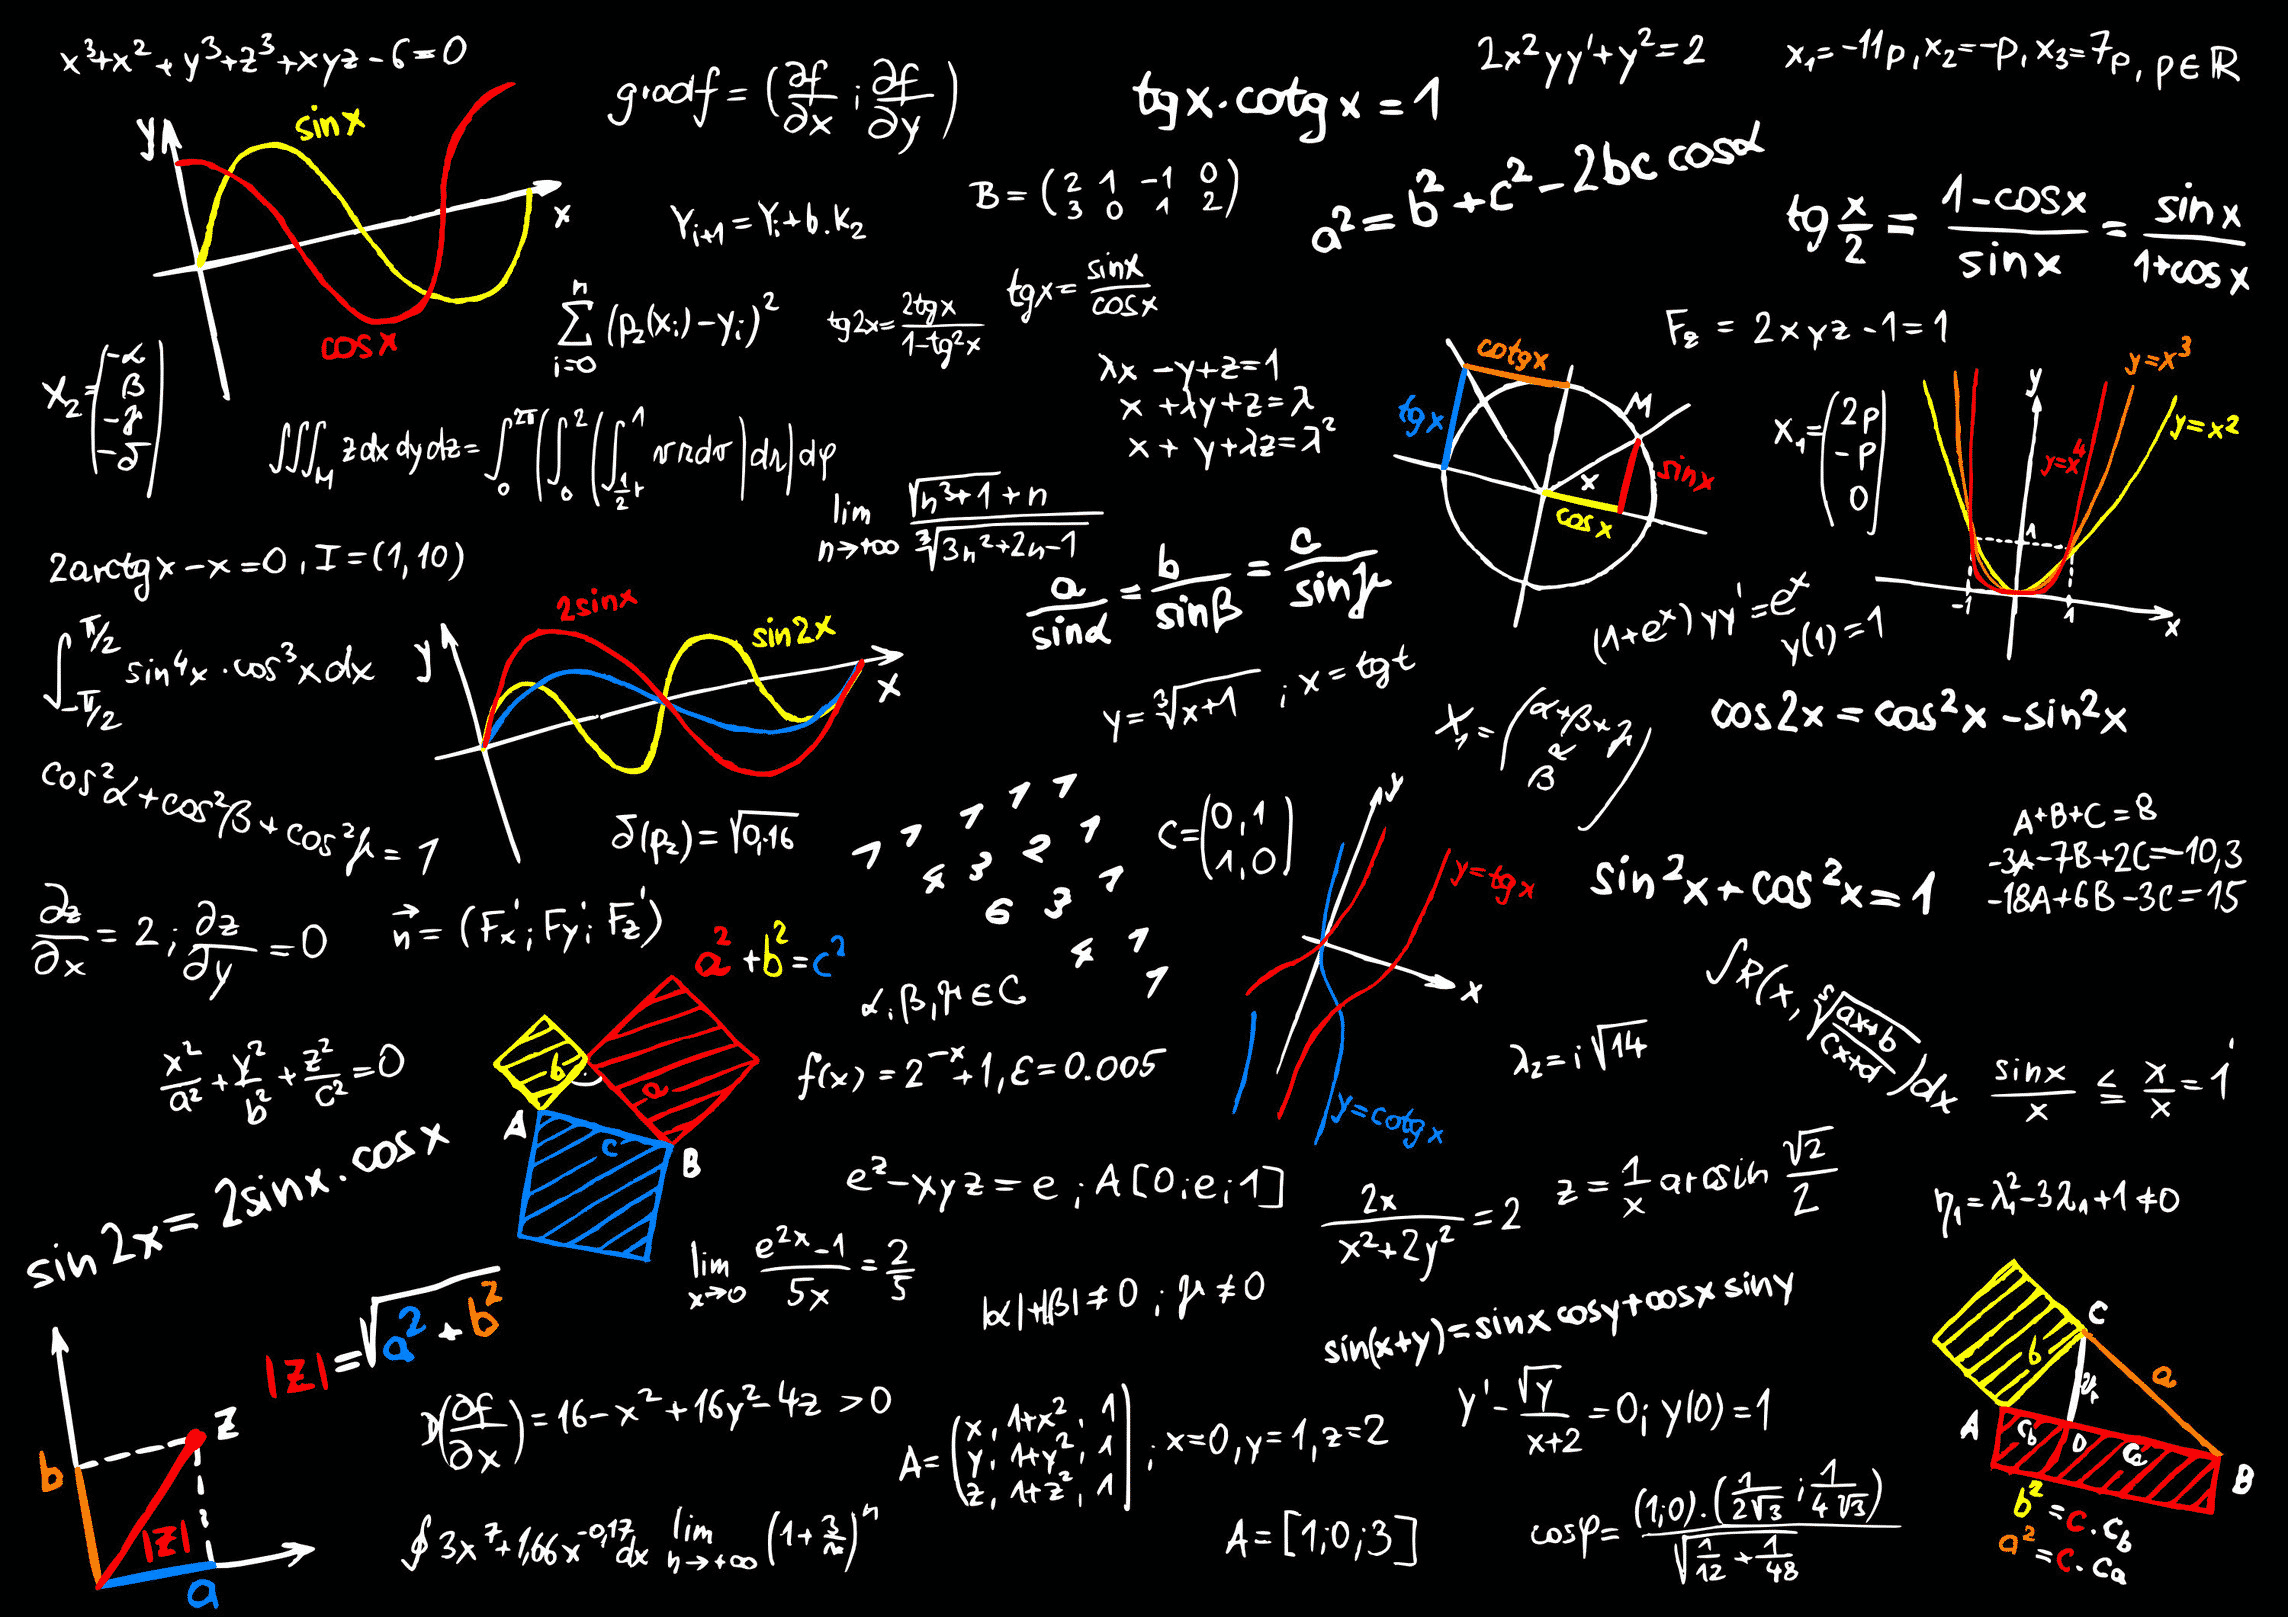 x³+x²+y³+z³+xyz-6=0
gradf = (∂f/∂x ; ∂f/∂y)
tgx·cotgx=1
2x²yy'+y²=2
x₁=-11p, x₂=-p, x₃=7p, p∈ℝ
y
sinx
x
cosx
Yᵢ₊₁=Yᵢ+b.K₂
B = (2 1 -1 0
3 0 1 2)
a²=b²+c²-2bc cosα
tg x/2 = 1-cosx/sinx = sinx/1+cosx
∑ i=0 n (p₂(xᵢ)-yᵢ)²
tg2x=2tgx/1-tg²x
tgx=sinx/cosx
F_z = 2xyz-1=1
X₂=(-α
β
-γ
-δ)
λx-y+z=1
x+λy+z=λ
x+y+λz=λ²
cotgx
tgx
M
sinx
x
cosx
X₁=(2p
-p
0)
y
y=x³
y=x²
y=x⁴
1
-1
1
x
∭_M zdxdydz=
lim n→+∞ √(n³+1)+n / ∛(3n²+2n-1)
2arctgx-x=0, I=(1,10)
a/sinα = b/sinβ = c/sinγ
(1+eˣ)yy'=eˣ
y(1)=1
∫ -π/2 π/2 sin⁴x·cos³xdx
y
2sinx
sin2x
x
y=∛(x+1) ; x=tgt
X₁=(α+β+γ
α
β)
cos2x=cos²x-sin²x
cos²α+cos²β+cos²γ=1
δ(p₂)=√0,16
1 1 1 1 1
4 3 2 1
6 3 1
4 1
1
C=(0,1
1,0)
y
y=tgx
x
y=cotgx
sin²x+cos²x=1
A+B+C=8
-3A-7B+2C=-10,3
-18A+6B-3C=15
∂z/∂x=2 ; ∂z/∂y=0
n⃗=(F'x; F'y; F'z)
a²+b²=c²
b
a
A
c
B
α,β,γ∈C
∫R(x, ˢ√(ax+b/cx+d))dx
x²/a²+y²/b²+z²/c²=0
f(x)=2⁻ˣ+1, ε=0.005
λ₂=i√14
sinx/x ≦ x/x = 1
sin2x=2sinx·cosx
eᶻ-xyz=e ; A[0;e;1]
2x/x²+2y²=2
z=1/x arcsin √2/2
η₁=λ₁²-3λ₁+1≠0
lim x→0 e²ˣ-1/5x=2/5
|α|+|β|≠0 ; γ≠0
sin(x+y)=sinxcosy+cosxsiny
|z|=√a²+b²
z
b
|z|
a
D(∂f/∂x)=16-x²+16y²-4z>0
A=(x, 1+x², 1
y, 1+y², 1
z, 1+z², 1) ; x=0, y=1, z=2
y'-√y/x+2=0; y(0)=1
C
b
a
v
A
c_b
D
c_a
B
b²=c·c_b
a²=c·c_a
∮3x⁷+1,66x⁻⁰·¹⁷dx
lim n→+∞ (1+3/n)ⁿ
A=[1;0;3]
cosφ=(1;0).(1/2√3 ; 1/4√3) / √(1/12+1/48)